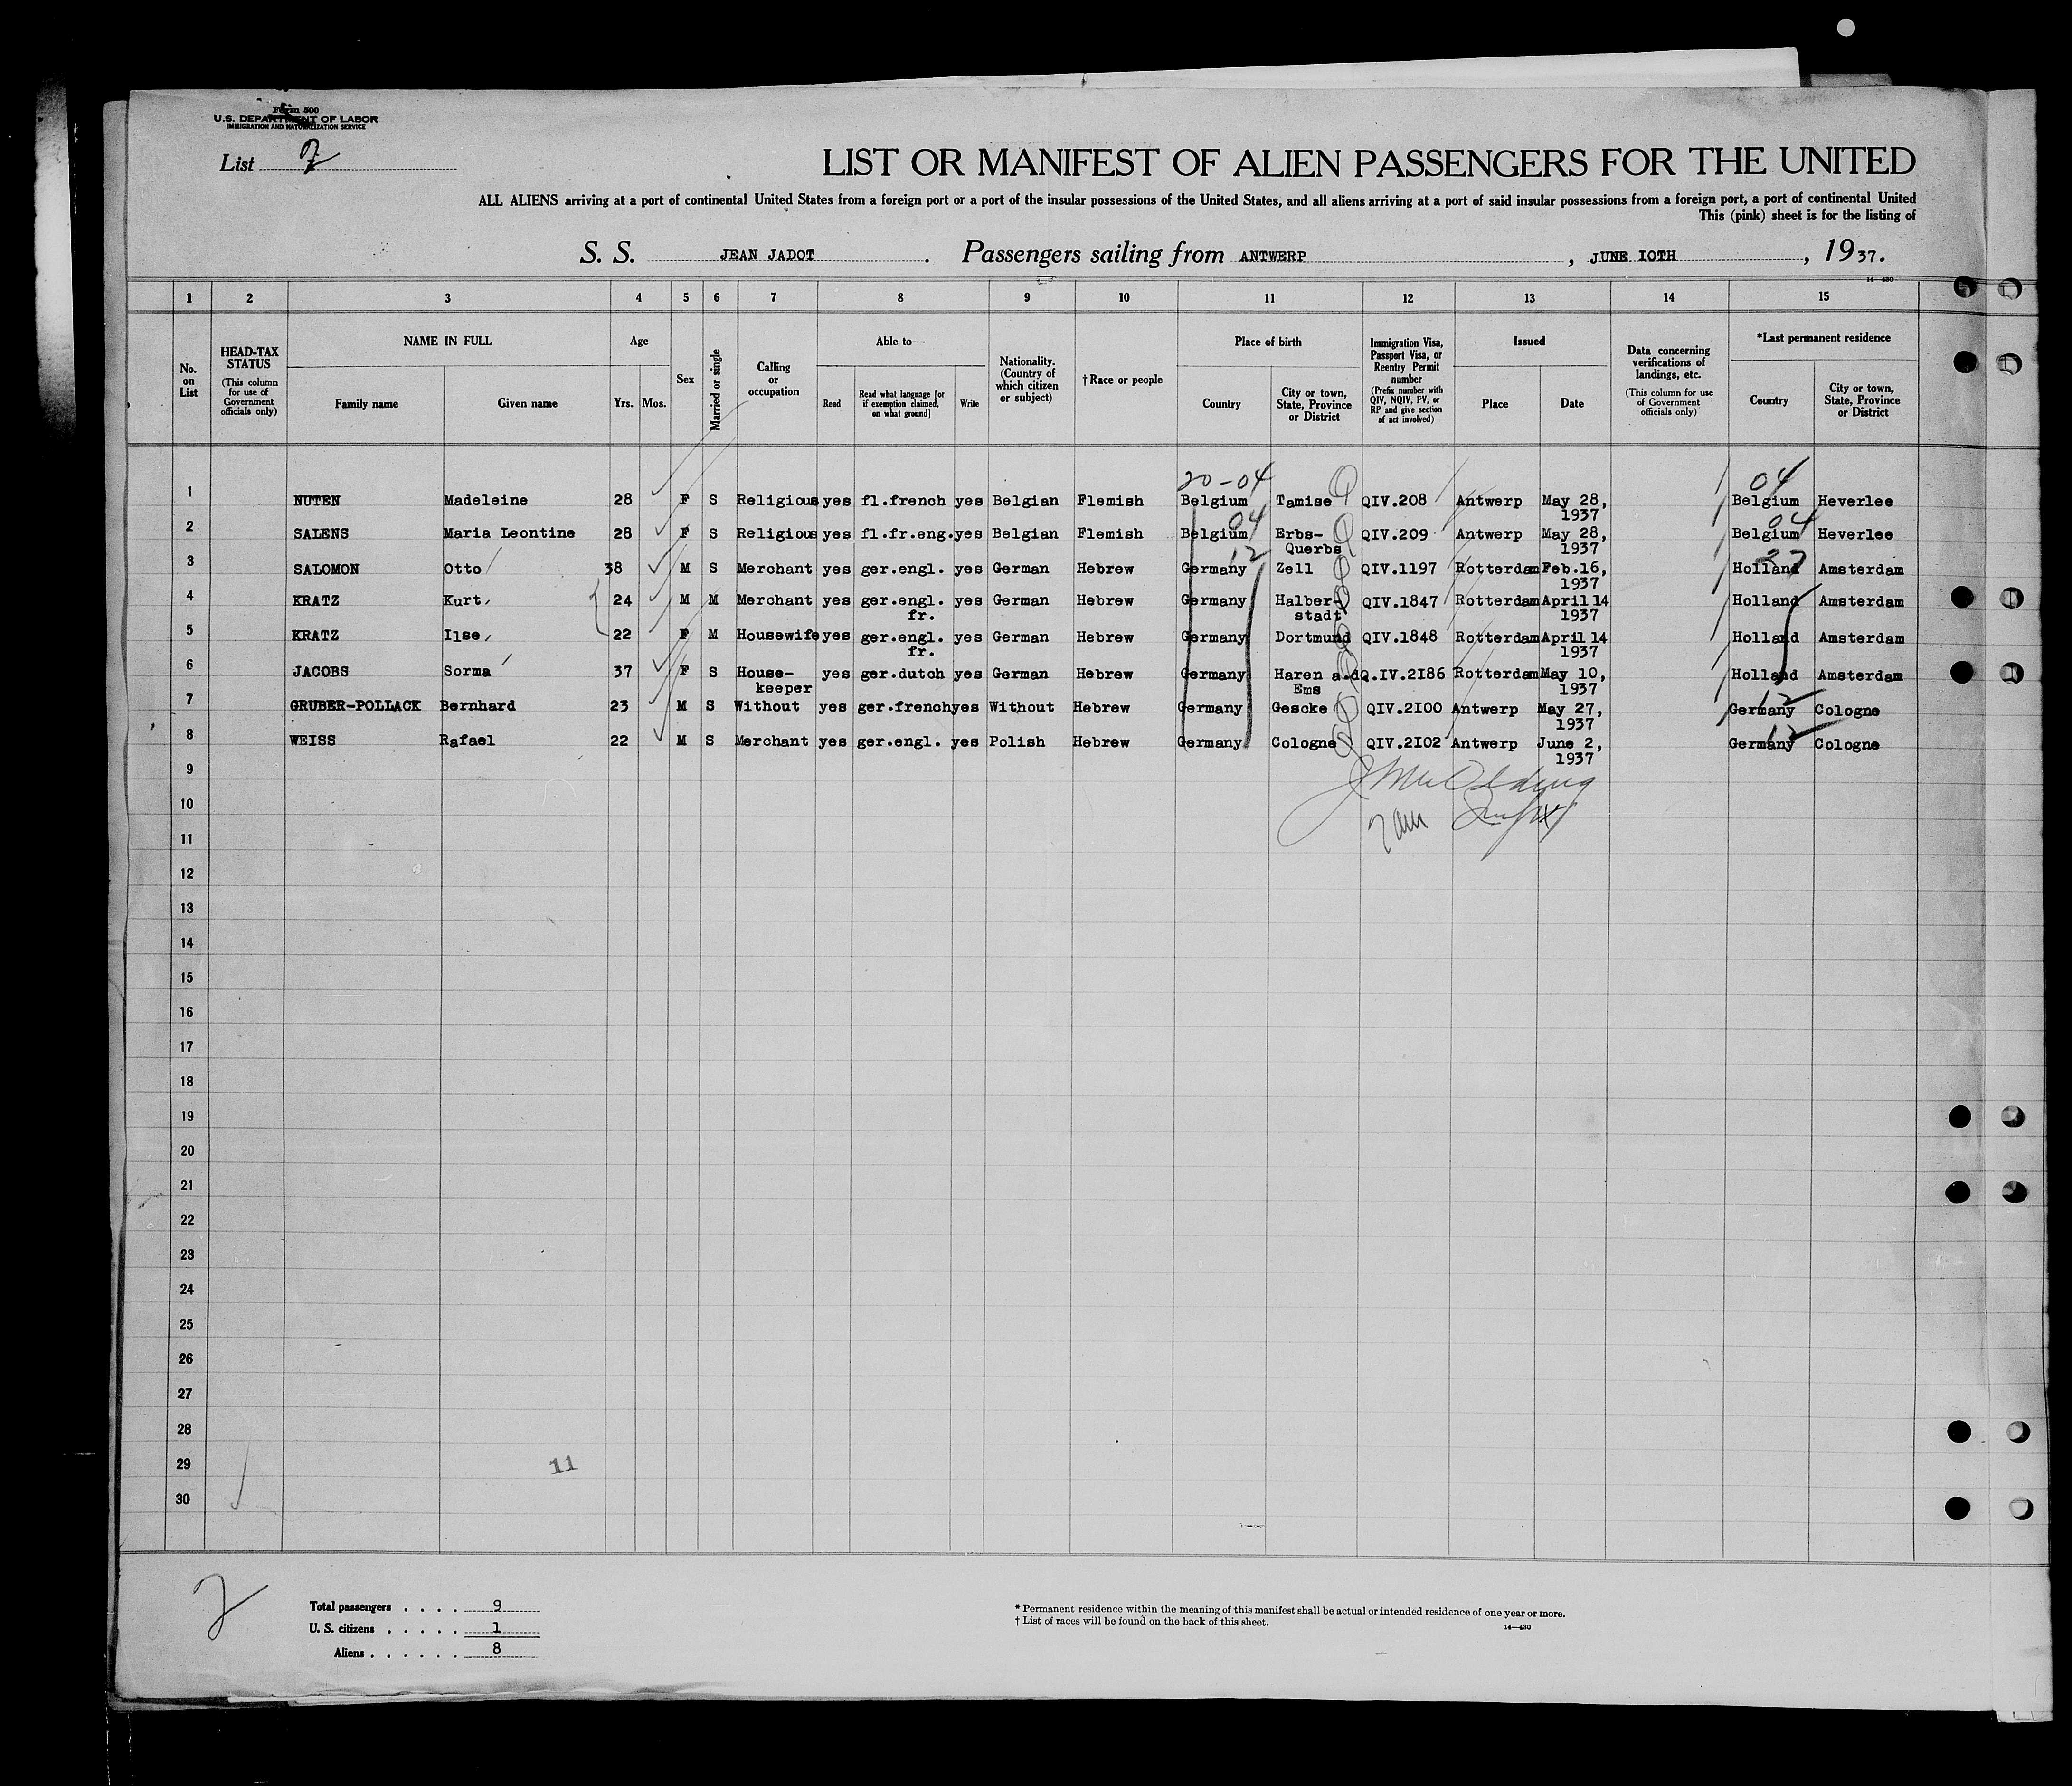 Form 500
U.S. DEPARTMENT OF LABOR
IMMIGRATION AND NATURALIZATION SERVICE
List 2
LIST OR MANIFEST OF ALIEN PASSENGERS FOR THE UNITED
ALL ALIENS arriving at a port of continental United States from a foreign port or a port of the insular possessions of the United States, and all aliens arriving at a port of said insular possessions from a foreign port, a port of continental United
This (pink) sheet is for the listing of
S. S. JEAN JADOT . Passengers sailing from ANTWERP , JUNE IOTH , 1937.
14—430
1 2 3 4 5 6 7 8 9 10 11 12 13 14 15
No. on List
HEAD-TAX STATUS (This column for use of Government officials only)
NAME IN FULL
Family name
Given name
Age
Yrs. Mos.
Sex
Married or single
Calling or occupation
Able to—
Read
Read what language [or if exemption claimed, on what ground]
Write
Nationality. (Country of which citizen or subject)
†Race or people
Place of birth
Country
City or town, State, Province or District
Immigration Visa, Passport Visa, or Reentry Permit number (Prefix number with QIV, NQIV, PV, or RP and give section of act involved)
Issued
Place
Date
Data concerning verifications of landings, etc. (This column for use of Government officials only)
*Last permanent residence
Country
City or town, State, Province or District
20-04 04
1 NUTEN Madeleine 28 F S Religious yes fl.french yes Belgian Flemish Belgium Tamise QIV.208 Antwerp May 28, 1937 Belgium Heverlee
04 04
2 SALENS Maria Leontine 28 F S Religious yes fl.fr.eng. yes Belgian Flemish Belgium Erbs-Querbs QIV.209 Antwerp May 28, 1937 Belgium Heverlee
12 27
3 SALOMON Otto 38 M S Merchant yes ger.engl. yes German Hebrew Germany Zell QIV.1197 Rotterdam Feb.16, 1937 Holland Amsterdam
4 KRATZ Kurt 24 M M Merchant yes ger.engl. fr. yes German Hebrew Germany Halber-stadt QIV.1847 Rotterdam April 14 1937 Holland Amsterdam
5 KRATZ Ilse 22 F M Housewife yes ger.engl. fr. yes German Hebrew Germany Dortmund QIV.1848 Rotterdam April 14 1937 Holland Amsterdam
6 JACOBS Sorma 37 F S House-keeper yes ger.dutch yes German Hebrew Germany Haren a.d Ems Q.IV.2I86 Rotterdam May 10, 1937 Holland Amsterdam
12
7 GRUBER-POLLACK Bernhard 23 M S Without yes ger.french yes Without Hebrew Germany Gescke QIV.2I00 Antwerp May 27, 1937 Germany Cologne
12
8 WEISS Rafael 22 M S Merchant yes ger.engl. yes Polish Hebrew Germany Cologne QIV.2I02 Antwerp June 2, 1937 Germany Cologne
9
10
11
12
13
14
15
16
17
18
19
20
21
22
23
24
25
26
27
28
29 11
30
2
Total passengers . . . . 9
U. S. citizens . . . . . 1
Aliens . . . . . . 8
* Permanent residence within the meaning of this manifest shall be actual or intended residence of one year or more.
† List of races will be found on the back of this sheet.
14—430